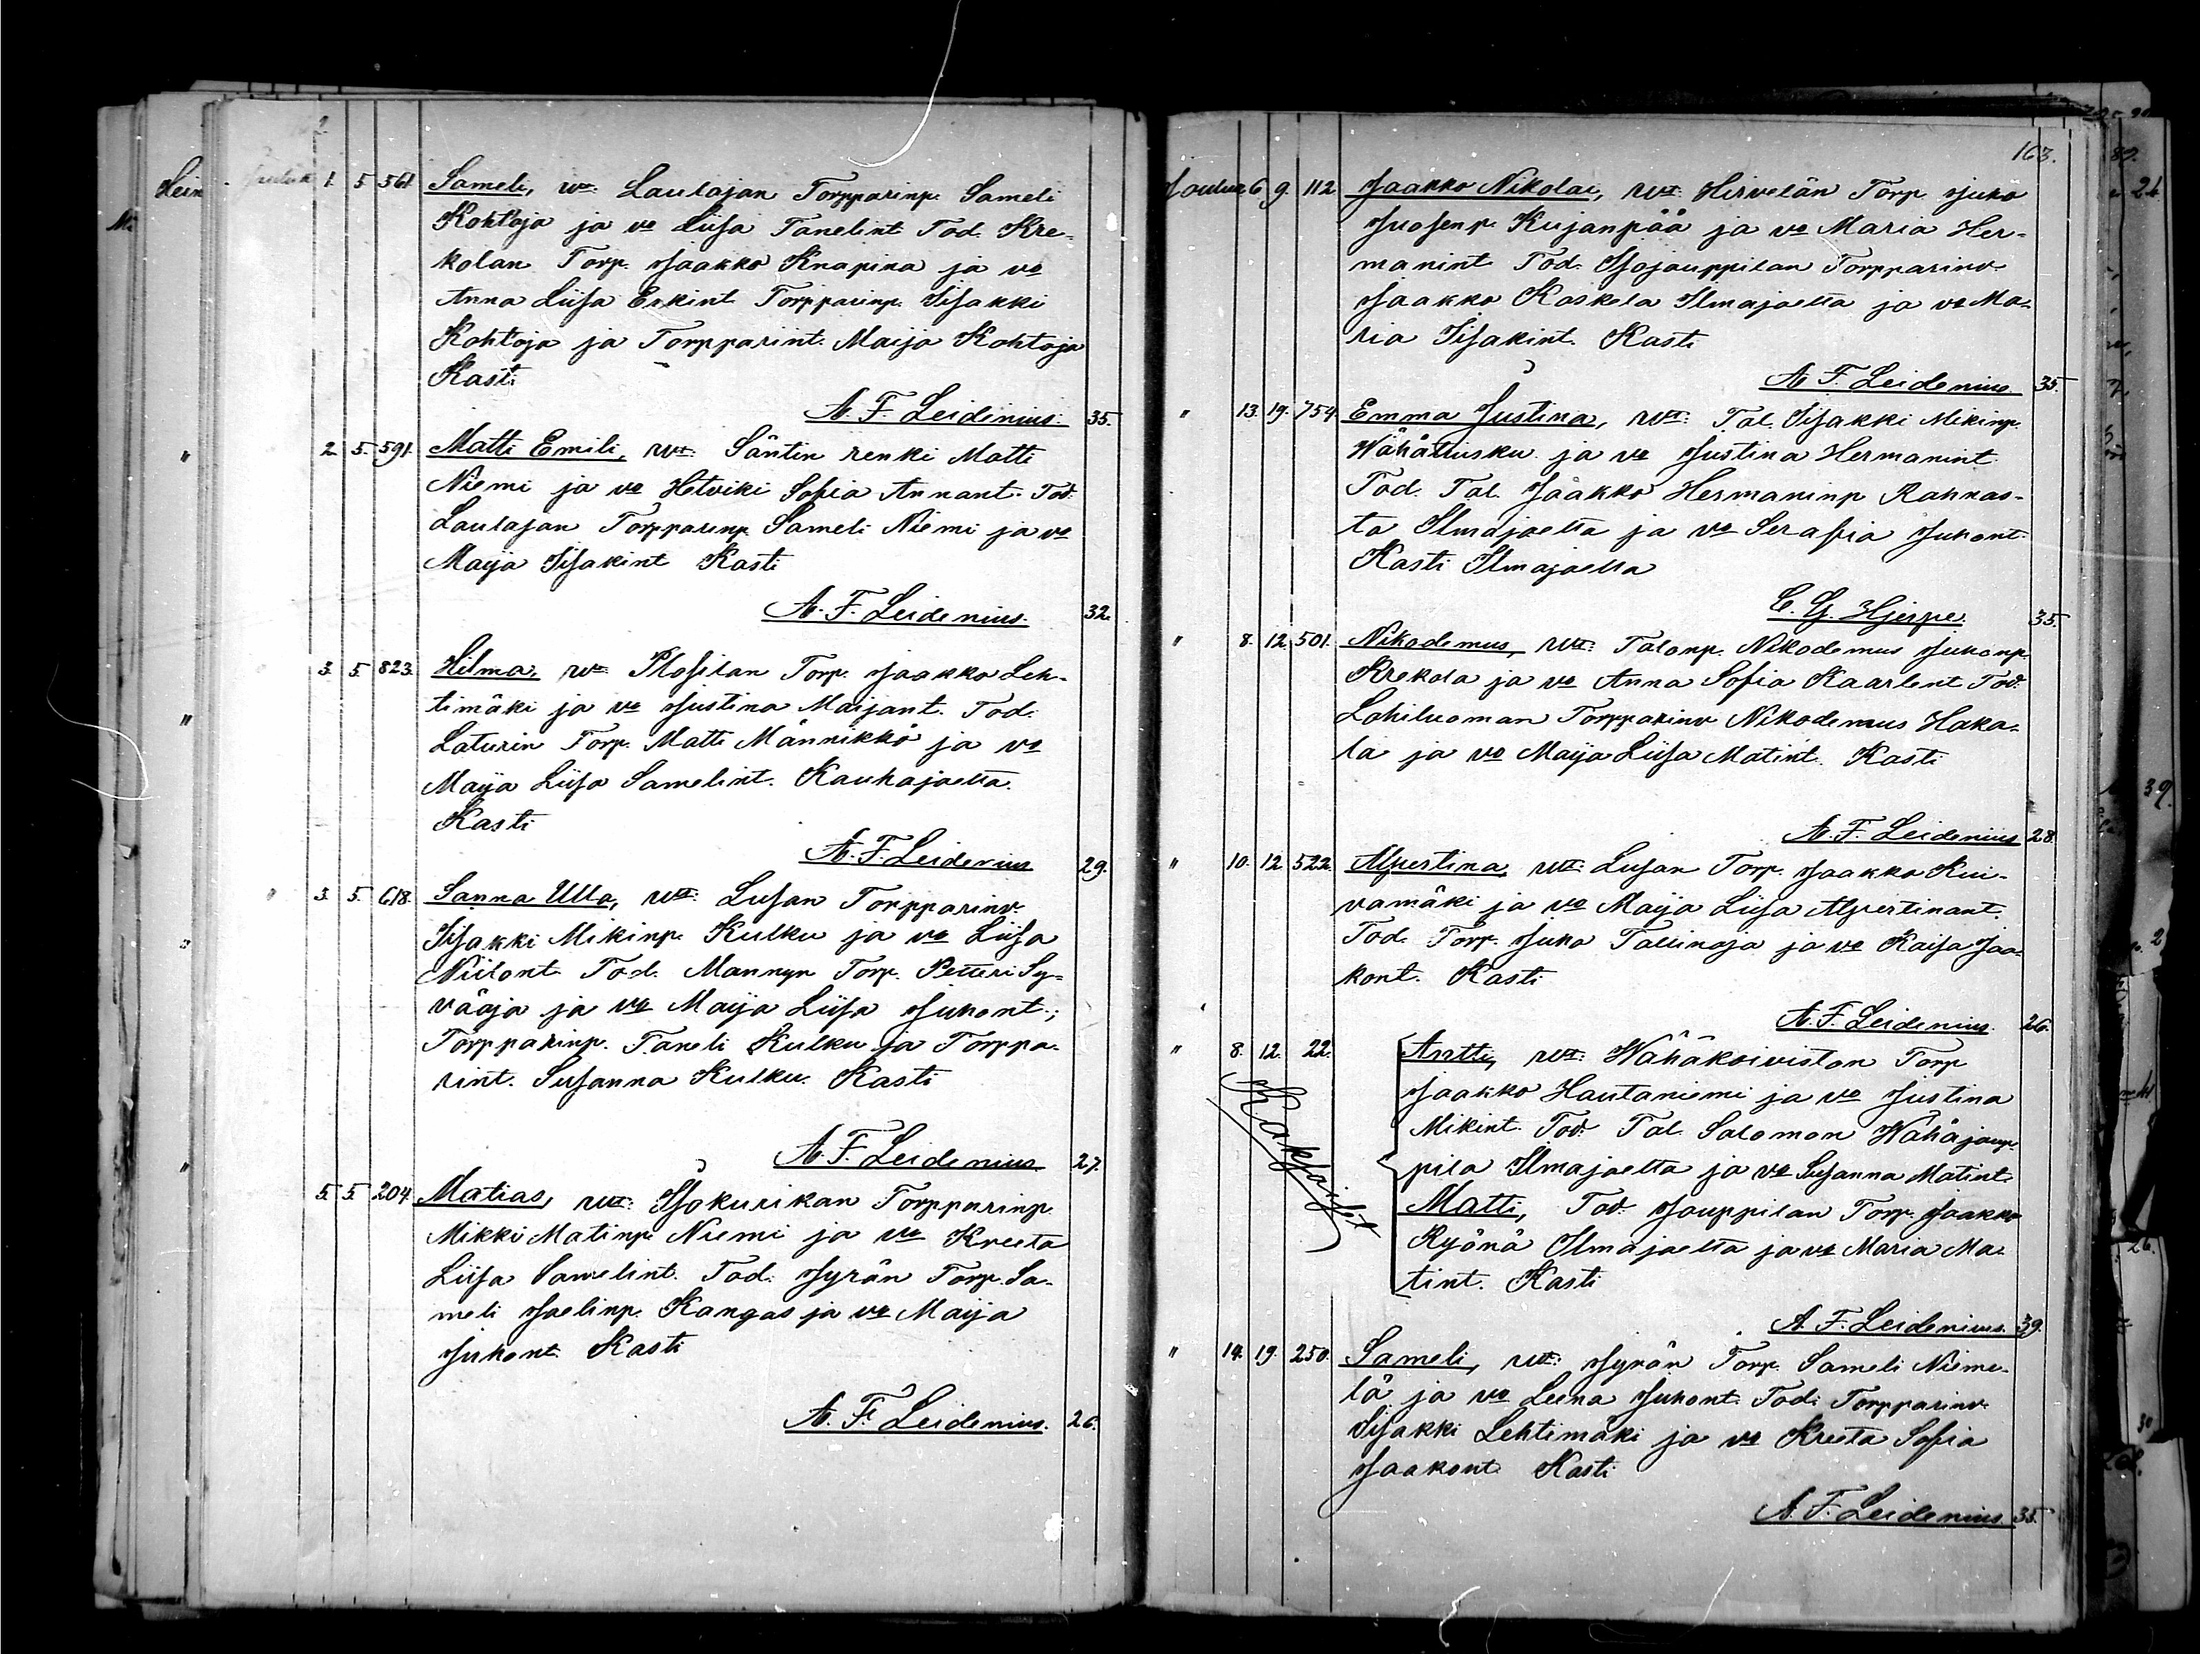 Jouluk 1. 5 561 Sameli, wt: Laulajan Torpparinp. Sameli
Kohtoja ja vo Liisa Tanelint Tod. Kre-
kolan Torp. Jaakko Knapina ja vo
Anna Liisa Erkint Torpparinp. Iisakki
Kohtoja ja Torpparint. Maija Kohtoja
Kasti
A. F. Leidenius. 35.
" 2. 5. 591. Matti Emili, wt: Säntin renki Matti
Niemi ja vo Hetviki Sofia Annant. Tod.
Laulajan Torpparinp. Sameli Niemi ja vo
Maija Iisakint Kasti
A. F. Leidenius. 32.
3. 5. 823. Hilma, wt Plosilan Torp. Jaakko Leh-
timäki ja vo Justina Maijant. Tod.
Laturin Torp. Matti Männikkö ja vo
Maija Liisa Samelint. Kauhajaelta.
Kasti
A. F. Leidenius 29.
" 3. 5. 618. Sanna Ulla, wt: Lusan Torpparinv.
Iisakki Mikinp. Kulku ja vo Liisa
Niilont Tod. Mannyn Torp. Petteri Sy-
väoja ja vo Maija Liisa Juhont.;
Torpparinp. Taneli Kulku ja Torppa-
rint. Susanna Kulku. Kasti
A. F. Leidenius 27.
5. 5. 204 Matias, wt: Isokurikan Torpparinp.
Mikki Matinp. Niemi ja vo Kreeta
Liisa Samelint. Tod. Jyrän Torp. Sa-
meli Joelinp. Kangas ja vo Maija
Juhont. Kasti
A. F. Leidenius. 26.
163.
Jouluk 6. 9. 112 Jaakko Nikolai, wt: Hirvelän Torp. Juho
Juosenp. Kujanpää ja vo Maria Her-
manint Tod. Isojauppilan Torpparinv.
Jaakko Koskela Ilmajaelta ja vo Ma-
ria Iisakint. Kasti
A. F. Leidenius. 35.
" 13. 19. 754. Emma Justina, wt: Tal. Iisakki Mikinp.
Wähätiusku ja vo Justina Hermanint
Tod. Tal. Jaakko Hermaninp Rahnas-
to Ilmajaelta ja vo Serafia Juhont.
Kasti Ilmajaella
C. G. Hjerpe. 35.
" 8. 12. 501. Nikodemus, wt: Talonp. Nikodemus Juhonp.
Krekola ja vo Anna Sofia Kaarlent Tod.
Lohiluoman Torpparinv Nikodemus Haka-
la ja vo Maija Liisa Matint. Kasti
A. F. Leidenius 28.
" 10. 12 522. Alpertina, wt: Lusan Torp. Jaakko Kui-
vamäki ja vo Maija Liisa Alpertinant.
Tod. Torp. Juho Talinoja ja vo Kaisa Jaa-
kont. Kasti
A. F. Leidenius. 26.
" 8. 12. 22. Antti, wt: Wähäkoiviston Torp
Jaakko Hautaniemi ja vo Justina
Mikint. Tod. Tal. Salomon Wähäjaup-
pila Ilmajaelta ja vo Susanna Matint.
Kaksoiset
Matti, Tod. Jauppilan Torp. Jaakko
Ryönä Ilmajaelta ja vo Maria Ma-
tint. Kasti
A. F. Leidenius. 39.
" 14. 19. 250. Sameli, wt: Jyrän Torp. Sameli Nieme-
lä ja vo Leena Juhont. Tod: Torpparinv.
Iisakki Lehtimäki ja vo Kreeta Sofia
Jaakont. Kasti
A. F. Leidenius. 35.